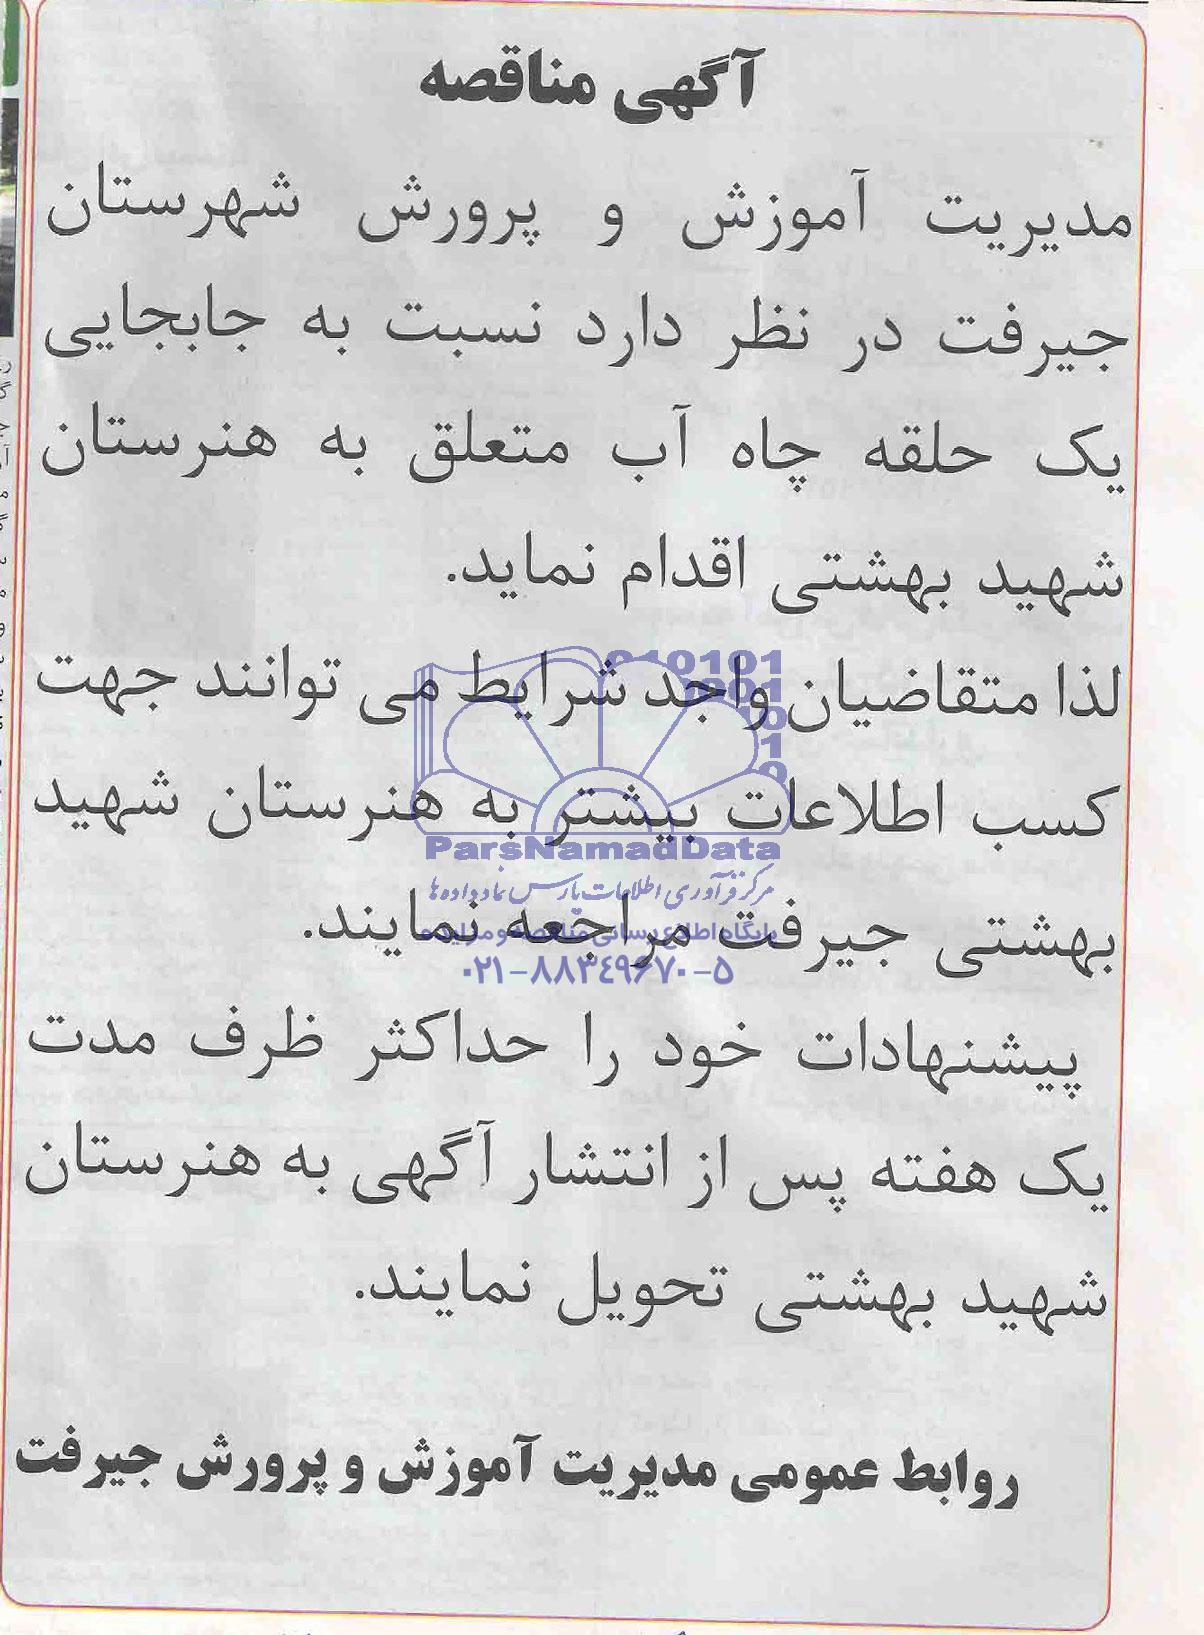 آگهی مناقصه
مدیریت آموزش و پرورش شهرستان
جیرفت در نظر دارد نسبت به جابجایی
یک حلقه چاه آب متعلق به هنرستان
شهید بهشتی اقدام نماید.
لذا متقاضیان واجد شرایط می توانند جهت
کسب اطلاعات بیشتر به هنرستان شهید
بهشتی جیرفت مراجعه نمایند.
پیشنهادات خود را حداکثر ظرف مدت
یک هفته پس از انتشار آگهی به هنرستان
شهید بهشتی تحویل نمایند.
روابط عمومی مدیریت آموزش و پرورش جیرفت
ParsNamadData
مرکز فرآوری اطلاعات پارس نماد داده ها
پایگاه اطلاع رسانی مناقصه و مزایده
۰۲۱-۸۸۳۴۹۶۷۰-۵